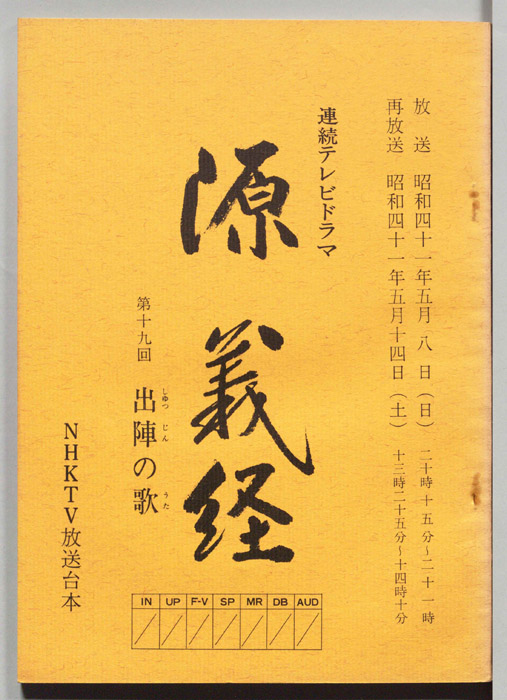 放送 昭和四十一年五月八日(日) 二十時十五分~二十一時
再放送 昭和四十一年五月十四日(土) 十三時二十五分~十四時十分
連続テレビドラマ
源義経
第十九回 出陣の歌
しゆつ じん うた
NHKTV放送台本
IN UP F-V SP MR DB AUD